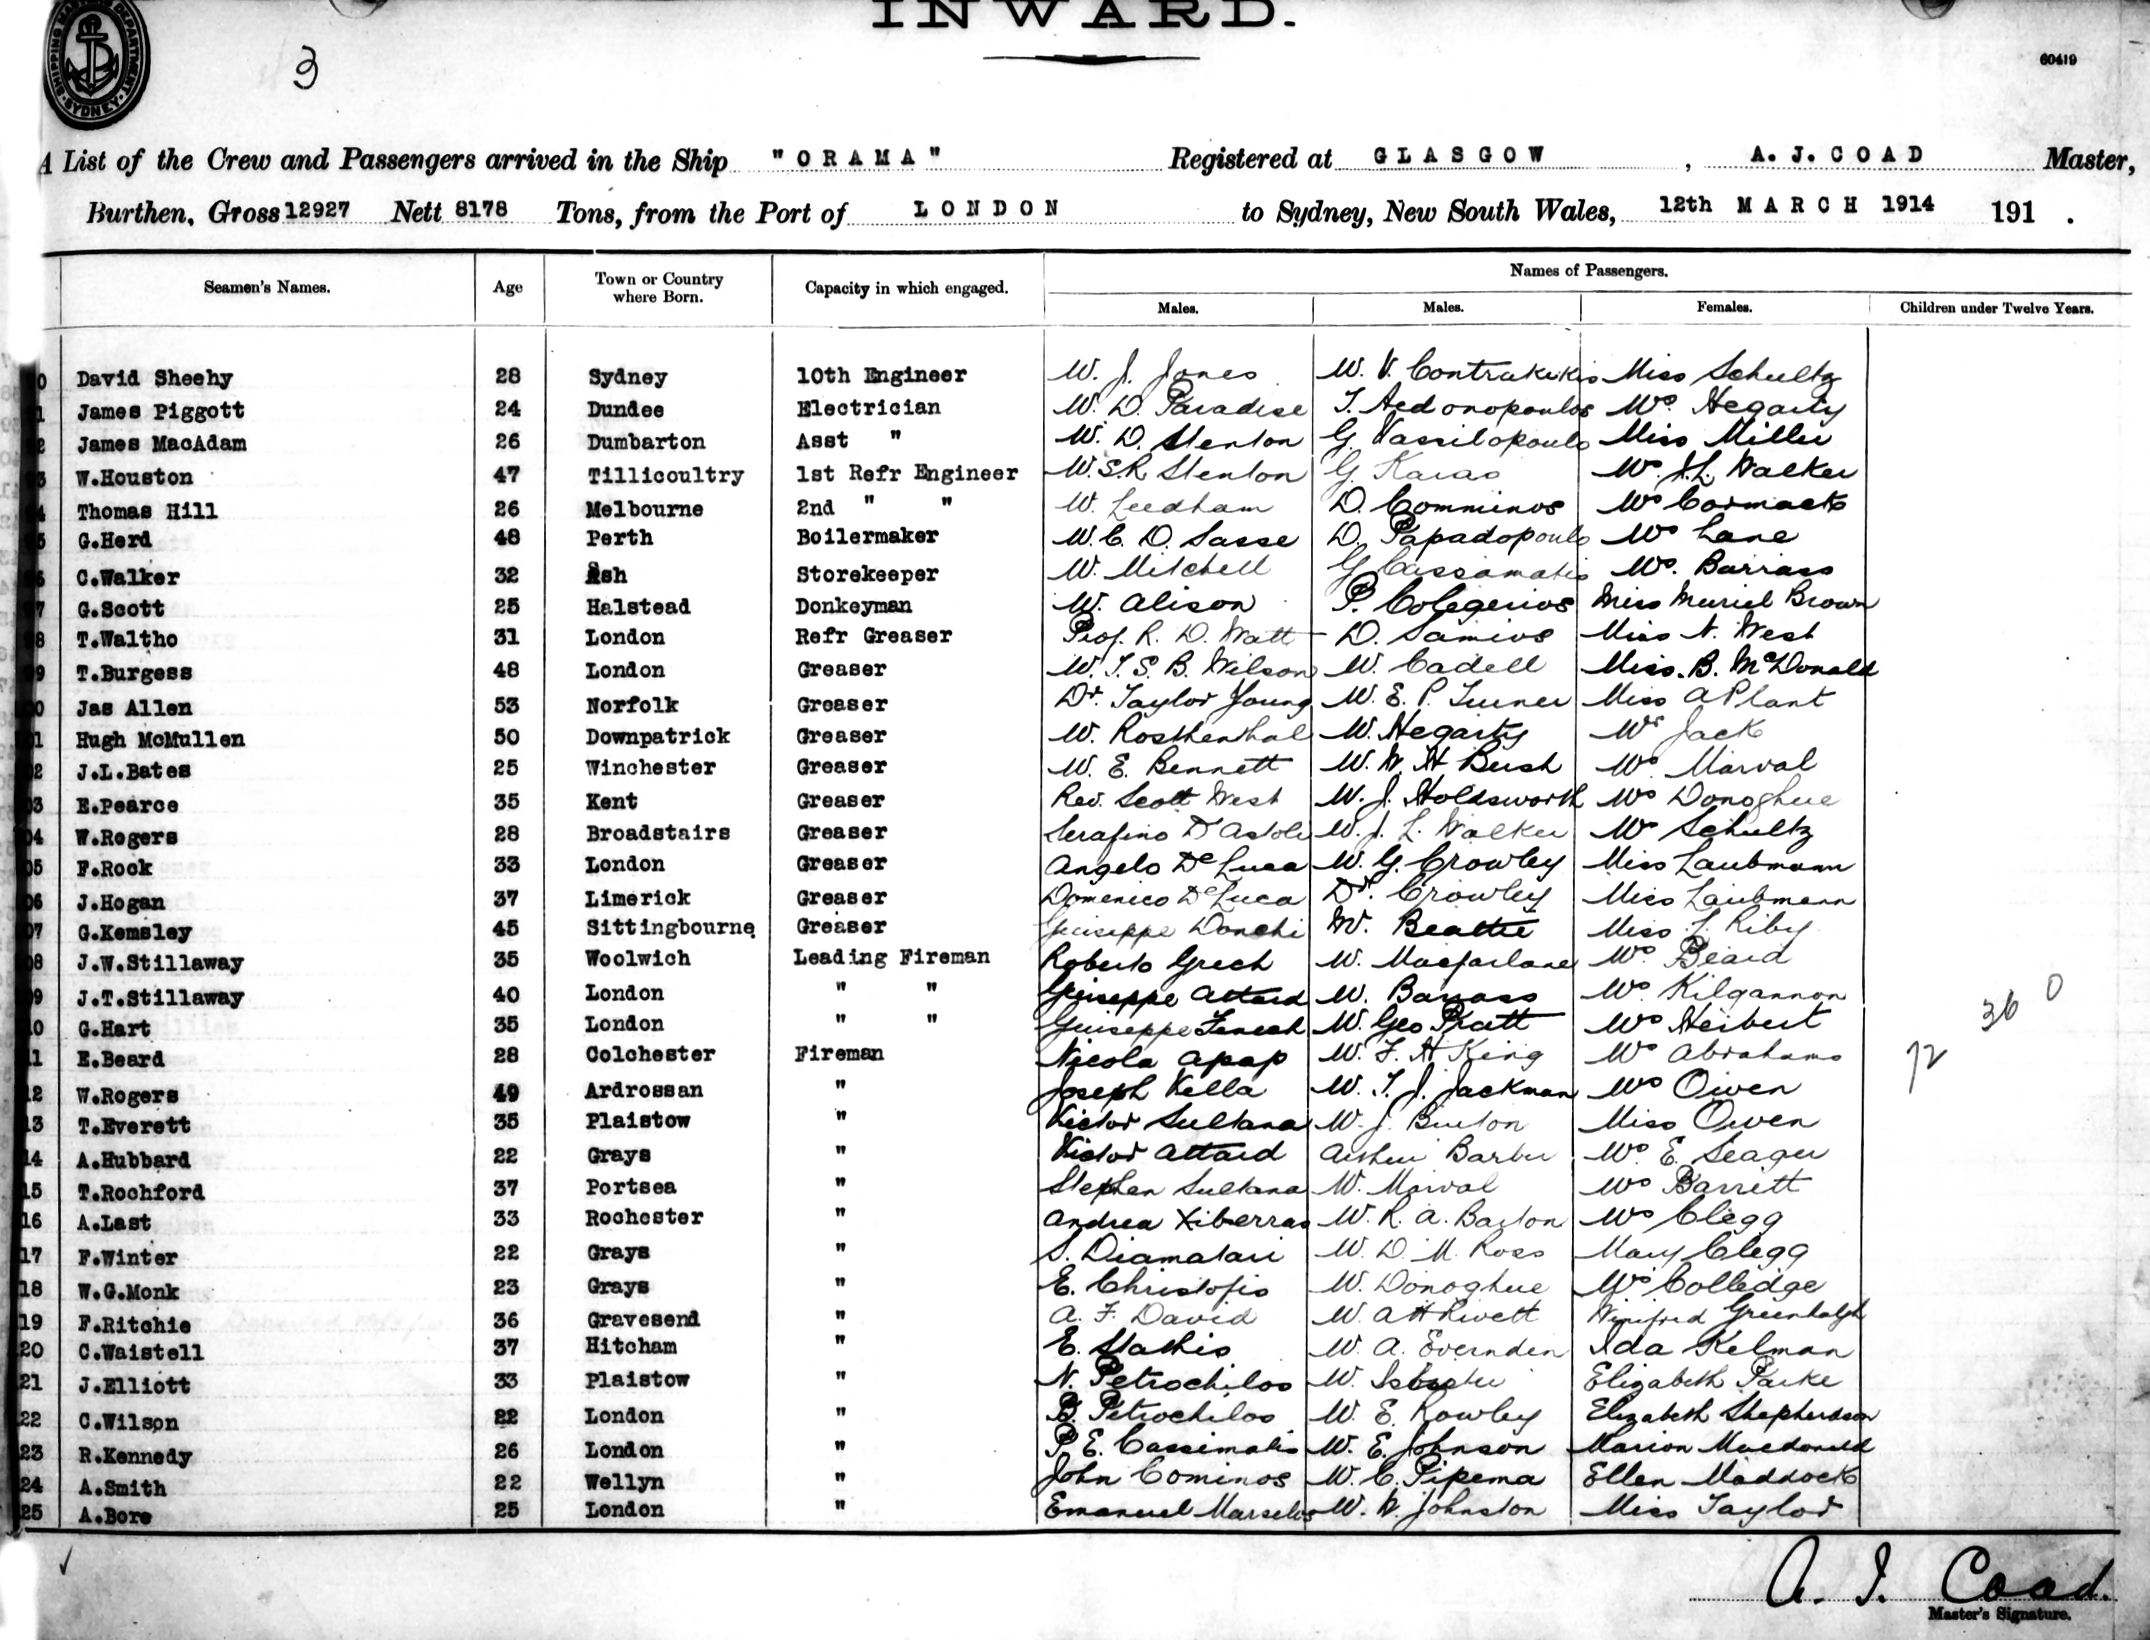 INWARD.
SHIPPING MASTERS DEPARTMENT SYDNEY
3
60419
A List of the Crew and Passengers arrived in the Ship "ORAMA" Registered at GLASGOW , A. J. COAD Master,
Burthen, Gross 12927 Nett 8178 Tons, from the Port of LONDON to Sydney, New South Wales, 12th MARCH 1914 191 .
Names of Passengers.
Seamen's Names. Age Town or Country where Born. Capacity in which engaged. Males. Males. Females. Children under Twelve Years.
David Sheehy 28 Sydney 10th Engineer W. J. Jones W. V. Contrakikis Miss Schultz
James Piggott 24 Dundee Electrician W. D. Paradise T. Aedonopoulos Ms Hegarty
James MacAdam 26 Dumbarton Asst " W. D. Stenton G. Vassilopoulo Miss Miller
W.Houston 47 Tillicoultry 1st Refr Engineer W. S. R. Stenton G. Karas Ms J. L. Walker
Thomas Hill 26 Melbourne 2nd " " W. Leedham D. Comminos Ms Cormack
G.Herd 48 Perth Boilermaker W. C. D. Sasse D. Papadopoulo Ms Lane
C.Walker 32 Ash Storekeeper W. Mitchell G. Cassamatis Ms. Barrass
G.Scott 25 Halstead Donkeyman W. Alison P. Colegerios Miss Muriel Brown
T.Waltho 31 London Refr Greaser Prof. R. D. Watt D. Samios Miss N. West
T.Burgess 48 London Greaser W. T. S. B. Wilson W. Cadell Miss. B. McDonald
Jas Allen 53 Norfolk Greaser Dr. Taylor Young W. E. P. Turner Miss A Plant
Hugh McMullen 50 Downpatrick Greaser W. Rosthenthal W. Hegarty Ms Jack
J.L.Bates 25 Winchester Greaser W. E. Bennett W. W. H Bush Ms Marval
E.Pearce 35 Kent Greaser Rev. Scott West W. J. Holdsworth Ms Donoghue
W.Rogers 28 Broadstairs Greaser Serafino D'Astoli W. J. L. Walker Ms Schultz
F.Rock 33 London Greaser Angelo De Luca W. G. Crowley Miss Laubmann
J.Hogan 37 Limerick Greaser Domenico De Luca Dr. Crowley Miss Laubmann
G.Kemsley 45 Sittingbourne Greaser Giuseppe Donchi W. Beattie Miss L. Riby
J.W.Stillaway 35 Woolwich Leading Fireman Roberto Grech W. Macfarlane Ms Beard
J.T.Stillaway 40 London " " Giuseppe Attard W. Barrass Ms Kilgannon
36 0
G.Hart 35 London " " Giuseppe Fenech W. Geo Pratt Ms Herbert
E.Beard 28 Colchester Fireman Nicola Apap W. F. H King Ms Abrahams 72
W.Rogers 49 Ardrossan " Joseph Vella W. T. J. Jackman Ms Owen
T.Everett 35 Plaistow " Victor Sultana W. J. Burton Miss Owen
A.Hubbard 22 Grays " Victor Attard Arthur Barber Ms E. Seager
T.Rochford 37 Portsea " Stephen Sultana W. Marval Ms Barrett
A.Last 33 Rochester " Andrea Xiberras W. R. A. Barton Ms Clegg
17 F.Winter 22 Grays " S. Diamatari W. D. M. Ross Mary Clegg
18 W.G.Monk 23 Grays " E. Christofis W. Donoghue Ms Colledge
19 F.Ritchie 36 Gravesend " A. F. David W. A H Rivett Winifred Greenhalgh
20 C.Waistell 37 Hitcham " E. Stathis W. A. Evernden Ida Kelman
21 J.Elliott 33 Plaistow " N. Petrochilos W. Elizabeth Parke
22 C.Wilson 22 London " B. Petrochilos W. E. Rowley Elizabeth Shepherdson
23 R.Kennedy 26 London " P. E. Cassimatis W. E. Johnson Marion Macdonald
24 A.Smith 22 Wellyn " John Cominos W. C. Pipema Ellen Maddock
25 A.Bore 25 London " Emanuel Marselos W. W. Johnston Miss Taylor
A. J. Coad.
Master's Signature.